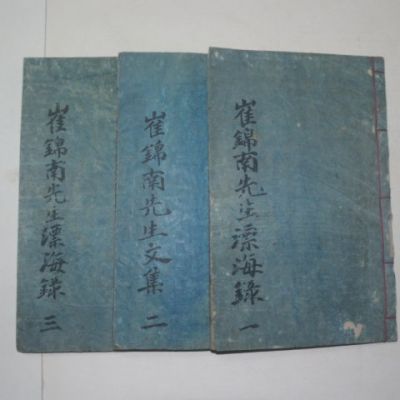 崔錦南先生漂海錄 一
崔錦南先生文集 二
崔錦南先生漂海錄 三